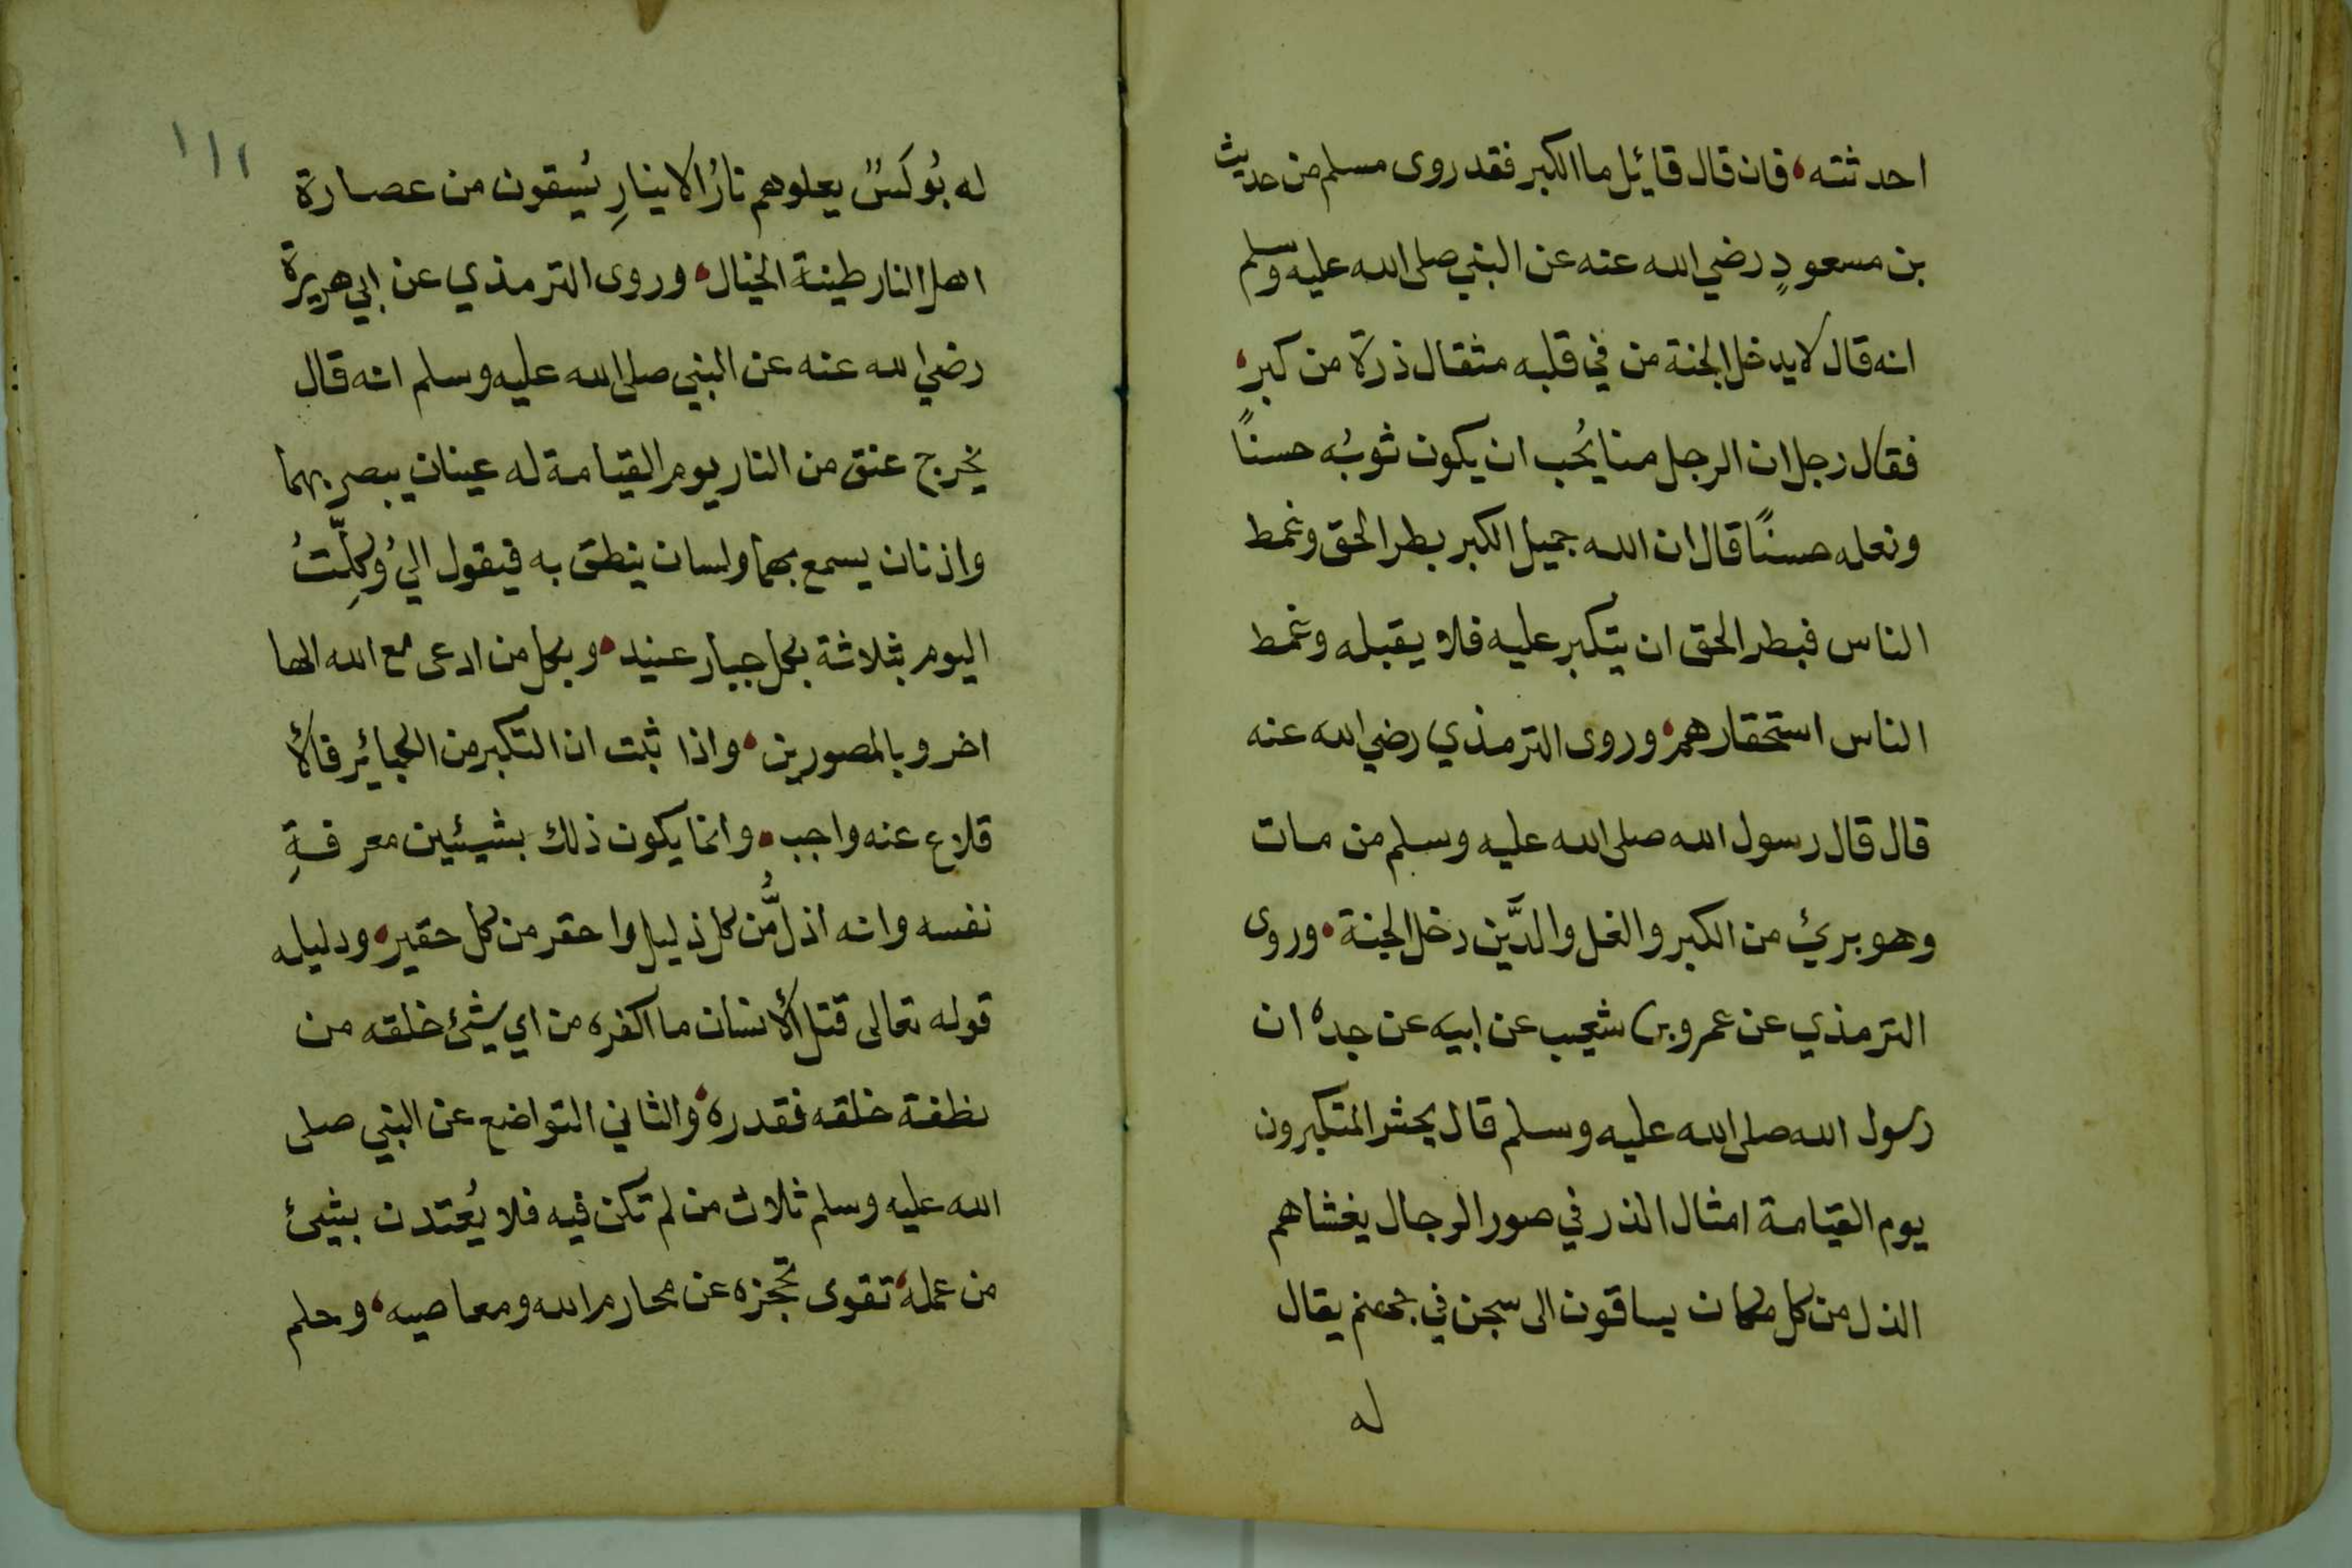 احدثته، فان قال قائيل ما الكبر فقد روى مسلم من حديث
بن مسعودٍ رضي الله عنه عن النبي صلى الله عليه وسلم
انه قال لا يدخل الجنة من في قلبه مثقال ذرة من كبر،
فقال رجل ان الرجل منا يُحب ان يكون ثوبُه حسنًا
ونعله حسنًا قال ان الله جميل الكبر بطر الحق وغمط
الناس فبطر الحق ان يتكبر عليه فلا يقبله وغمط
الناس استحقارهم، وروى الترمذي رضي الله عنه
قال قال رسول الله صلى الله عليه وسلم من مات
وهو بريئ من الكبر والغل والدَّين دخل الجنة، وروى
الترمذي عن عمرو بن شعيب عن ابيه عن جده ان
رسول الله صلى الله عليه وسلم قال يحشر المتكبرون
يوم القيامة امثال الذر في صور الرجال يغشاهم
الذل من كل مكان يساقون الى سجن في جهنم يقال
له
١١٢
له بُوكَسٌ يعلوهم نارُ الاينارِ يُسقون من عصارة
اهل النار طينة الخيال، وروى الترمذي عن ابي هريرة
رضي الله عنه عن النبي صلى الله عليه وسلم انه قال
يخرج عنق من النار يوم القيامة له عينان يبصر بهما
واذنان يسمع بهما ولسان ينطق به فيقول الي وُكِلّتُ
اليوم بثلاثة بكل جبار عنيد، وبكل من ادعى مع الله الها
اخر وبالمصورين، واذا ثبت ان التكبر من الكبائر فالأ
قلاع عنه واجب، وانما يكون ذلك بشيئين معرفةِ
نفسه وانه اذلُّ من كل ذليل واحقر من كل حقير، ودليله
قوله تعالى قتل الأنسان ما اكفره من اي شيئ خلقه من
نطفة خلقه فقدره، والثاني التواضع عن النبي صلى
الله عليه وسلم ثلاث من لم تكن فيه فلا يُعتدن بشيئ
من عمله، تقوى تحجزه عن محارم الله ومعاصيه، وحلم